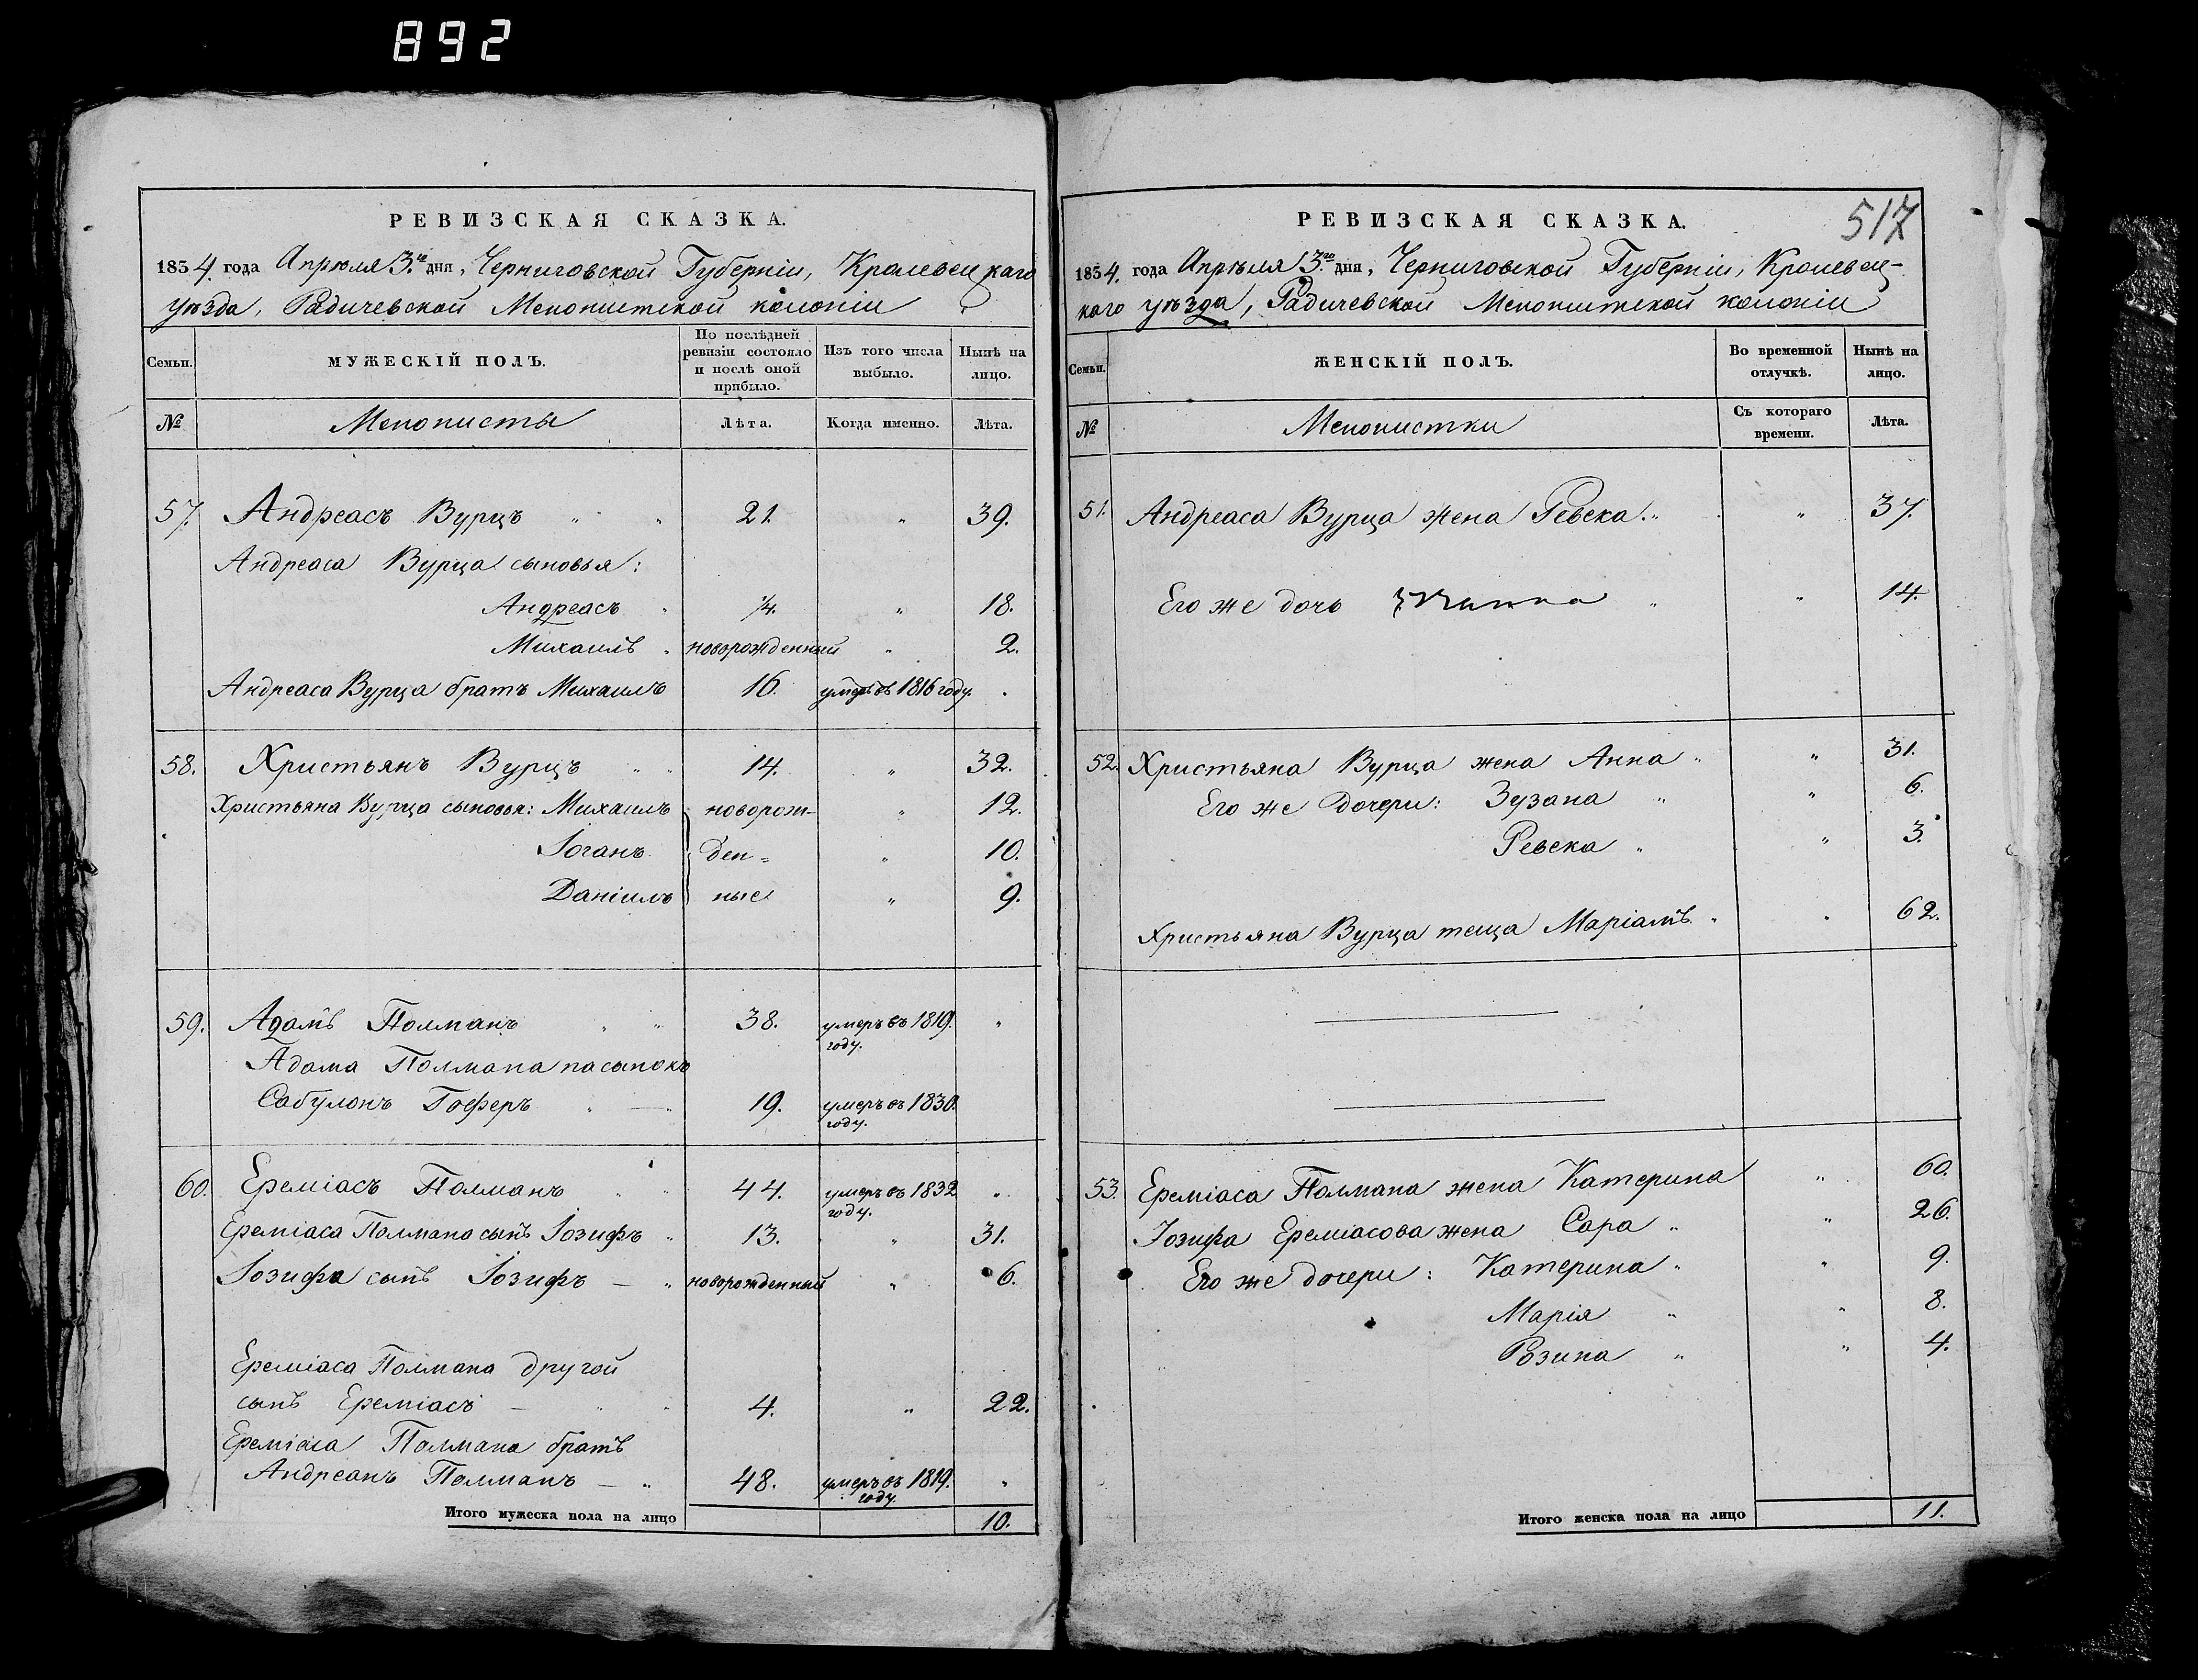 892
РЕВИЗСКАЯ СКАЗКА.
1834. года Апрѣля 3.го дня, Черниговской Губерніи, Кролевецкаго
уѣзда, Радичевской Менонистской колоніи
Семьи.
МУЖЕСКІЙ ПОЛЪ.
По послѣдней ревизіи состояло и послѣ оной прибыло.
Изъ того числа выбыло.
Нынѣ на лицо.
№
Менонисты
Лѣта.
Когда именно.
Лѣта.
57. Андреасъ Вурцъ " " 21. " 39.
Андреаса Вурца сыновья:
Андреасъ " ¼. " 18.
Михаилъ " новорожденный " 2.
Андреаса Вурца братъ Михаилъ 16. умеръ въ 1816 году. "
58. Христьянъ Вурцъ " " 14. " 32.
Христьяна Вурца сыновья: Михаилъ новорож- " 12.
Іоганъ ден= " 10.
Даніилъ ные " 9.
59. Адамъ Полманъ " " 38. умеръ въ 1819. году. "
Адама Полмана пасынокъ
Сабулонъ Гоферъ " — " 19. умеръ въ 1830. году.
60. Ереміасъ Полманъ " " 44. умеръ въ 1832 году. "
Ереміаса Полмана сынъ Іозифъ " 13. " 31.
Іозифа сынъ Іозифъ — " новорожденный " 6.
Ереміаса Полмана другой
сынъ Ереміасъ — " " 4. " 22.
Ереміаса Полмана братъ
Андреанъ Полманъ — " 48. умеръ въ 1819. году. "
Итого мужеска пола на лицо 10.
517
РЕВИЗСКАЯ СКАЗКА.
1834. года Апрѣля 3.го дня, Черниговской Губерніи, Кролевец-
каго уѣзда, Радичевской Менонистской колоніи
Семьи.
ЖЕНСКІЙ ПОЛЪ.
Во временной отлучкѣ.
Нынѣ на лицо.
№
Менонистки
Съ котораго времени.
Лѣта.
51. Андреаса Вурца жена Ревека. " " 37.
Его же дочь " " 14.
52. Христьяна Вурца жена Анна " " 31.
Его же дочери: Зузана " " 6.
Ревека " " 3.
Христьяна Вурца теща Маріамъ. " " 62.
53. Ереміаса Полмана жена Катерина " 60.
Іозифа Ереміасова жена Сара " " 26.
Его же дочери: Катерина " " 9.
Марія " " 8.
Розина " " 4.
Итого женска пола на лицо 11.